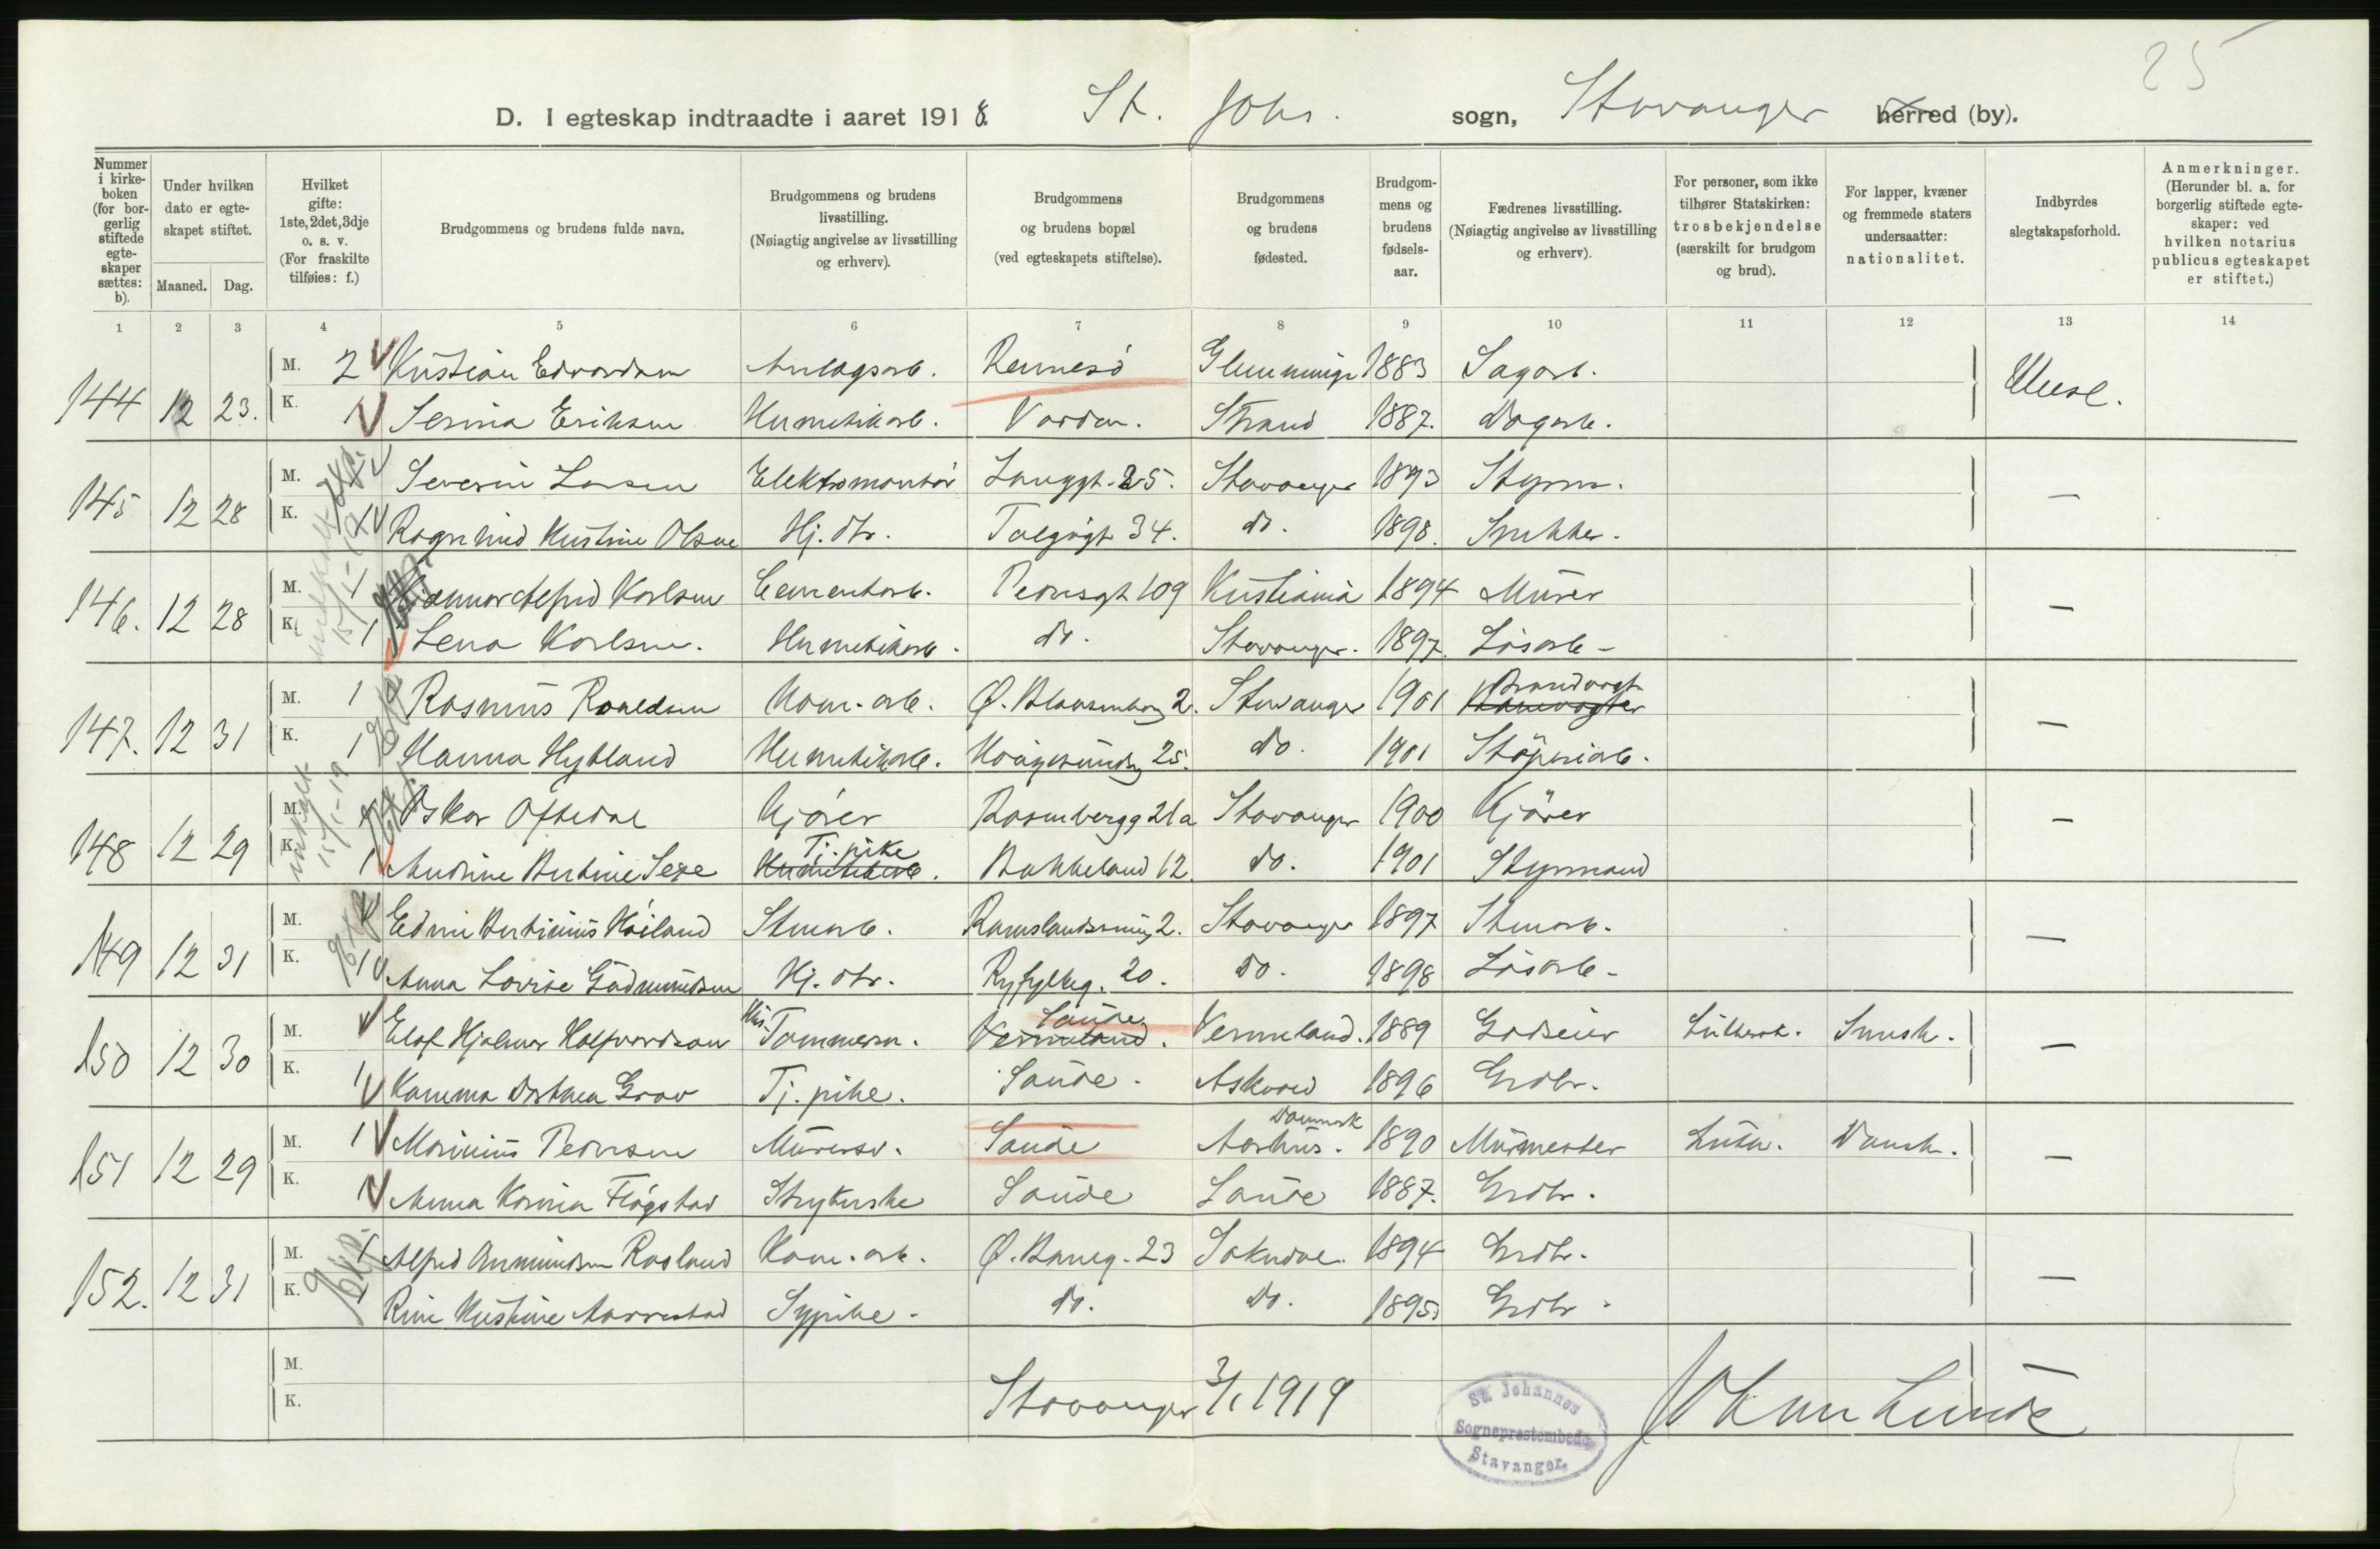 25
D. I egteskap indtraadte i aaret 1918. St. Johs. sogn, Stavanger herred (by).
Nummer i kirkeboken (for borgerlig stiftede egteskaper sættes: b).
Under hvilken dato er egteskapet stiftet.
Maaned. Dag.
Hvilket gifte: 1ste, 2det, 3dje o. s. v. (For fraskilte tilføies: f.)
Brudgommens og brudens fulde navn.
Brudgommens og brudens livsstilling. (Nøiagtig angivelse av livsstilling og erhverv).
Brudgommens og brudens bopæl (ved egteskapets stiftelse).
Brudgommens og brudens fødested.
Brudgommens og brudens fødselsaar.
Fædrenes livsstilling. (Nøiagtig angivelse av livsstilling og erhverv).
For personer, som ikke tilhører Statskirken: trosbekjendelse (særskilt for brudgom og brud).
For lapper, kvæner og fremmede staters undersaatter: nationalitet.
Indbyrdes slegtskapsforhold.
Anmerkninger. (Herunder bl. a. for borgerlig stiftede egteskaper: ved hvilken notarius publicus egteskapet er stiftet.)
1 2 3 4 5 6 7 8 9 10 11 12 13 14
144 12 23. M. 2 Kristian Edvardsen Anlægsarb. Rennesö 1883 Sagarb.
K. 1 Serina Eriksen Hermetikarb. Varden. Strand 1887. Dagarb.
145 12 28 M. 1 Severin Larsen Elektromontör Langgt. 25. Stavanger 1893 Styrm. —
K. 1 Ragnhild Kristine Olsen Hj. dtr. Talgögt 34. do. 1898. Snekker.
146. 12 28 M. 1 Alfred Karlsen Cementarb. Pedersgt 109 Kristiania 1894 Murer —
K. 1 Lena Karlsen. Hermetikarb. do. Stavanger. 1897. Lösarb.
147. 12 31 M. 1 Rasmus Roaldsen Kom. arb. Ø. Blaasenborg 2. Stavanger 1901 Brandvagt —
K. 1 Hanna Hytland Hermetikarb. Haugesundsg 25. do. 1901 Stöperiarb.
148 12 29 M. 1 Oskar Oftedal Kjörer Rosenbergg 21a Stavanger 1900 Kjörer —
K. 1 Andrine Bertine Sexe Tj. pike Bakkeland 12. do. 1901 Styrmand
149 12 31 M. 1 Edvin Bertinius Höiland Stenarb. Ramslandsminne 2. Stavanger 1897 Stenarb. —
K. 1 Anna Lovise Gudmundsen Hj. dtr. Ryfylkeg. 20. do. 1898 Lösarb.
150 12 30 M. Elof Hjalmar Halfvardson Tømmerm. Vermland. Saude Vermland. 1889 Gårdeier Luthersk. Svensk. —
K. 1 Kamma Dorthea Grav Tj. pike. Saude. Askvold 1896 Grdbr.
151 12 29 M. 1 Marinius Pedersen Murersv. Saude Aarhus. Danmark 1890 Murmester Luth. Dansk. —
K. 1 Anna Karina Flögstad Strykerske Saude Saude 1887. Grdbr.
152. 12 31 M. 1 Alfred Anmundsen Rosland Kom. arb. Ø. Baneg. 23 Sokndal. 1894 Grdbr. —
K. 1 Rine Kristine Aarrestad Sypike. do. do. 1895. Grdbr.
M.
K.
Stavanger 3/1 1919
St. Johannes
Sogneprestembede
Stavanger.